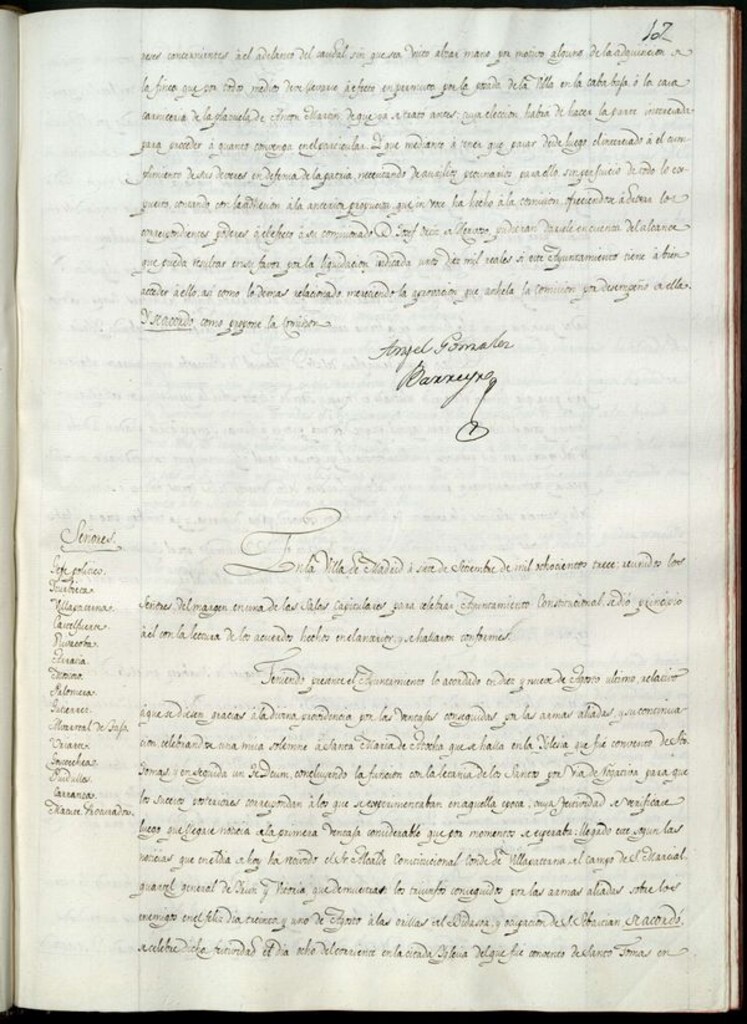 12
ses concernientes á el adelanto del caudal, sin que sea visto alzar mano por motivo alguno de la adquisicion de
la finca que por todos medios debe llevarse á efecto en permuta por la posada de la Villa en la caba baja ó la casa
carniceria de la plazuela de Anton Martin, de que ya se trató antes: cuya eleccion habia de hacer la parte interesada
para proceder á quanto convenga en el particular. Y que mediante á tener que pasar desde luego el interesado á el cum-
plimiento de sus deberes en defensa de la patria, necesitando de auxilios pecuniarios para ello, sin perjuicio de todo lo ex-
puesto, contando con la adhesion á la anterior propuesta que in voce ha hecho á la comision, ofreciendose á dexar los
correspondientes poderes á el efecto á su comisionado D. Josef
que pueda resultar en su favor por la liquidacion indicada unos diez mil reales si este Ayuntamiento tiene á bien
acceder á ello, así como lo demas relacionado, mereciendo la aprovacion que anhela la Comision por desempeño de ella.
Y se acordó, como propone la Comision
Angel Gonzalez
Barreyro
Señores.
Gefe politico.
Villapaterna.
Castelfuerte.
Moreno
Palomera.
Gutierrez
Monreal de
Uriarte
Goicoechea
Carranza
En la Villa de Madrid á siete de Setiembre de mil ochocientos trece; reunidos los
Señores del margen en una de las Salas Capitulares para celebrar Ayuntamiento Constitucional, se dió principio
á él con la lectura de los acuerdos hechos en el anterior, y se hallaron conformes.
Teniendo presente el Ayuntamiento lo acordado en diez y nueve de Agosto ultimo, relativo
á que se diesen gracias á la divina providencia por las ventajas conseguidas por las armas aliadas, y su continua-
cion celebrandose una misa solemne á Santa Maria de Atocha que se halla en la Iglesia que fué convento de Sto
Tomas, y en seguida un Te Deum, concluyendo la funcion con la letania de los Santos por Via de Rogativa para que
los sucesos posteriores correspondan á los que se experimentaban en aquella epoca, cuya festividad se verificase
luego que llegase noticia de la primera ventaja considerable que por momentos se esperaba: llegado este segun las
noticias que en el dia de hoy ha recivido el Sr Alcalde Constitucional Conde de Villapaterna, del campo de S. Marcial,
quartel general de Irun y Vitoria, que demuestran los triunfos conseguidos por las armas aliadas sobre los
enemigos en el feliz dia treinta y uno de Agosto á las orillas del Bidasoa, y ocupacion de S. Sebastian, Se acordó,
se celebre dicha festividad el dia ocho del corriente en la citada Iglesia del que fué convento de Santo Tomas en